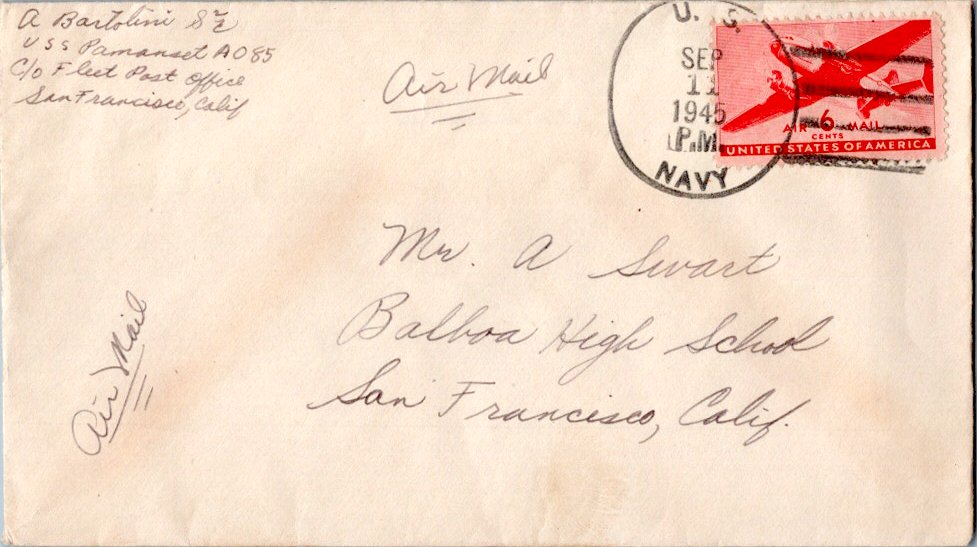 A Bartolini S 2/c
USS Pamanset AO85
C/o Fleet Post Office
San Francisco, Calif
Air Mail
U. S.
SEP
11
1945
P.M.
NAVY
AIR 6 MAIL
CENTS
UNITED STATES OF AMERICA
Mr. A Swart
Balboa High School
San Francisco, Calif.
Air Mail